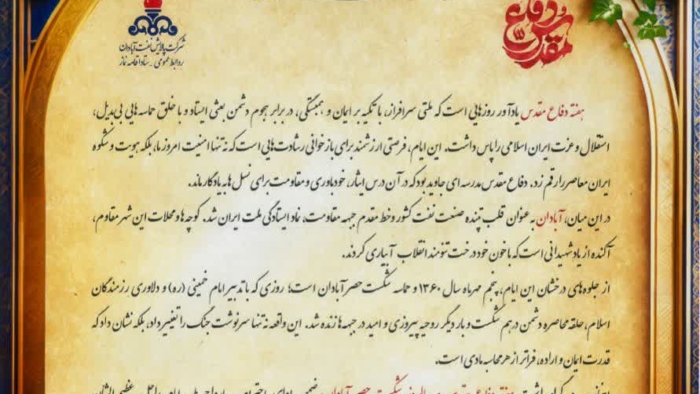 دفاع مقدس
شرکت پالایش نفت آبادان
روابط عمومی - ستاد اقامه نماز
هفته دفاع مقدس یادآور روزهایی است که ملتی سرافراز، با تکیه بر ایمان و همبستگی، در برابر هجوم دشمن بعثی ایستاد و با خلق حماسه هایی بی بدیل،
استقلال و عزت ایران اسلامی را پاس داشت. این ایام، فرصتی ارزشمند برای بازخوانی رشادت‌هایی است که نه تنها امنیت امروز ما، بلکه هویت و شکوه
ایران معاصر را رقم زد. دفاع مقدس مدرسه ای جاوید بود که در آن درس ایثار، خودباوری و مقاومت برای نسل ها به یادگار ماند.
در این میان، آبادان به عنوان قلب تپنده صنعت نفت کشور و خط مقدم جبهه مقاومت، نماد ایستادگی ملت ایران شد. کوچه ها و محلات این شهر مقاوم،
آکنده از یاد شهیدانی است که با خون خود درخت تنومند انقلاب آبیاری کردند.
از جلوه‌های درخشان این ایام، پنجم مهرماه سال ۱۳۶۰ و حماسه شکست حصر آبادان است؛ روزی که با تدبیر امام خمینی (ره) و دلاوری رزمندگان
اسلام، حلقه محاصره دشمن در هم شکست و بار دیگر روحیه پیروزی و امید در جبهه ها زنده شد. این واقعه نه تنها سرنوشت جنگ را تغییر داد، بلکه نشان داد که
قدرت ایمان و اراده، فراتر از هر محاسبه مادی است.